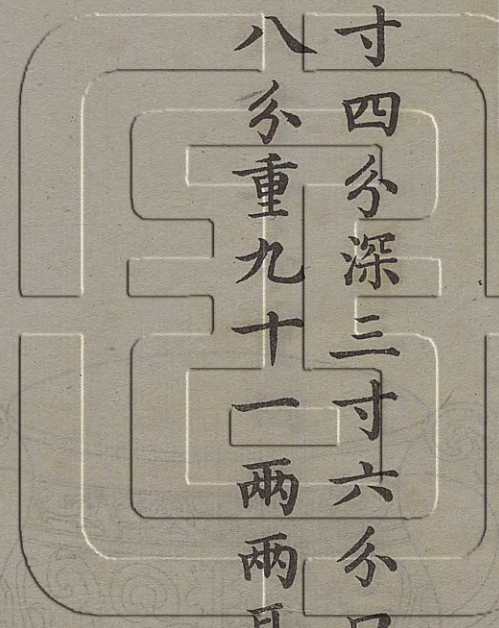 寸四分深三寸六分口
八分重九十一兩兩耳